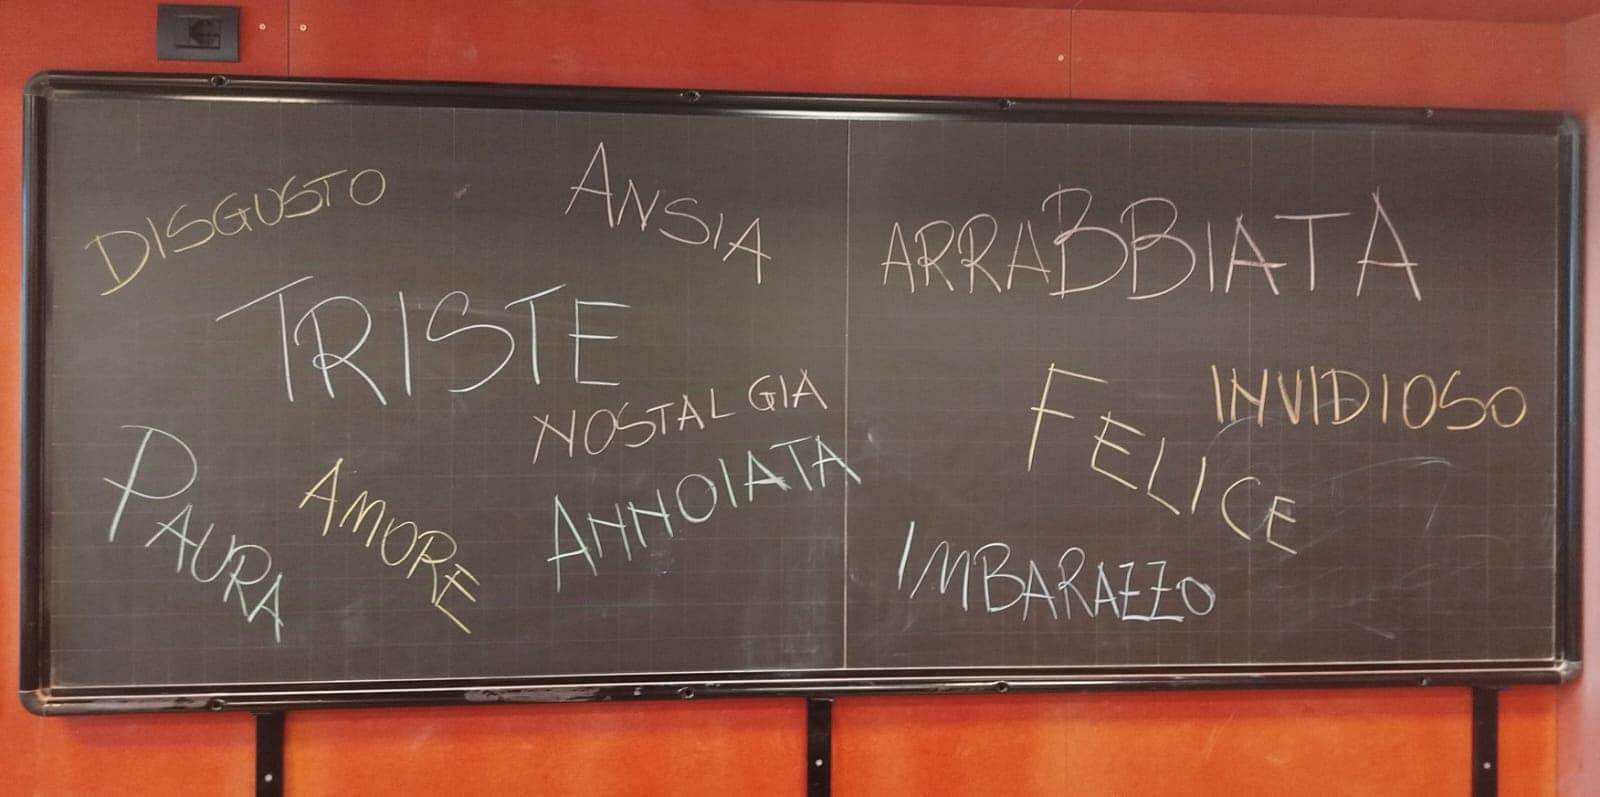 DISGUSTO
ANSIA
TRISTE
NOSTALGIA
PAURA
AMORE
ANNOIATA
ARRABBIATA
INVIDIOSO
FELICE
IMBARAZZO